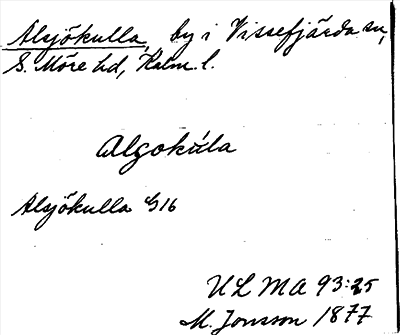 Alsjökulla, by i Vissefjärda sn,
S. Möre hd, Kalm. l.
Algokúla
Alsjökulla G16
ULMA 93:25
M. Jonsson 1877